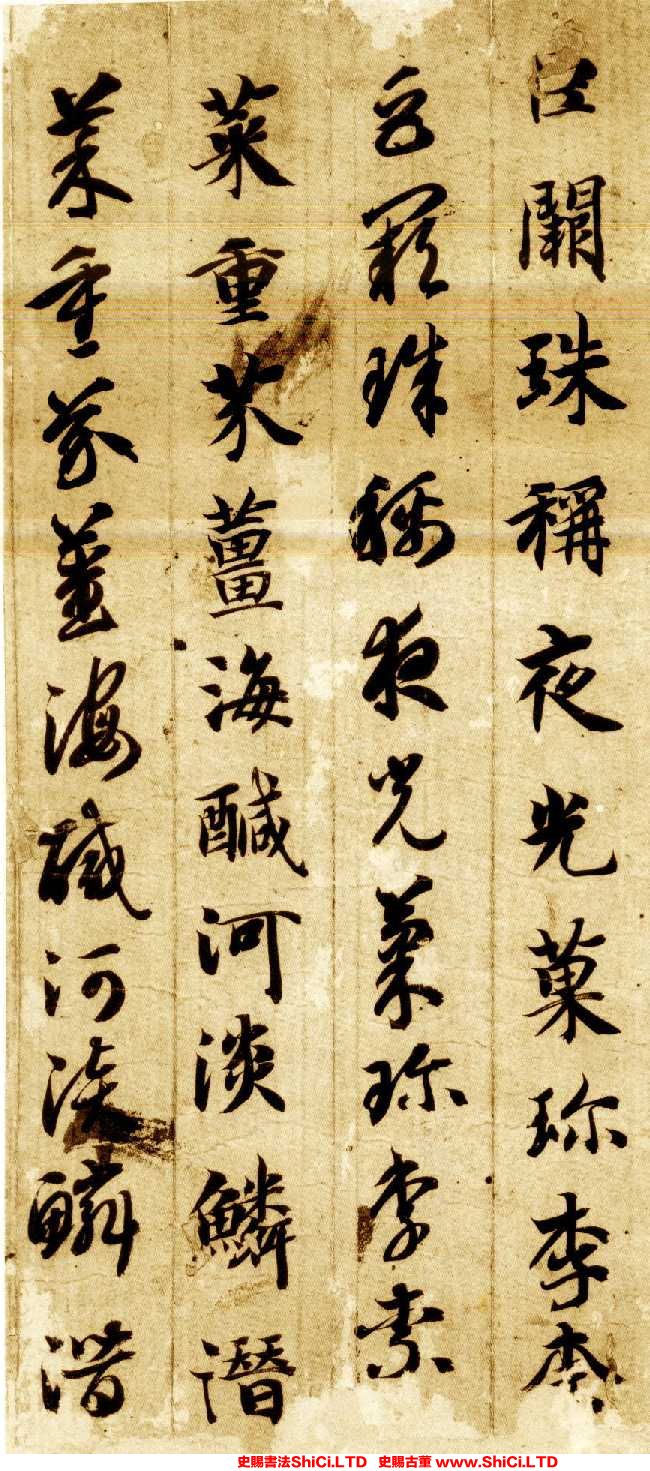 巨闕珠稱夜光菓珎李柰
巨闕珠稱夜光菓珎李柰
菜重芥薑海醎河淡鱗潛
菜重芥薑海醎河淡鱗潛
史賜書法ShiCi.LTD 史賜古董 www.ShiCi.LTD